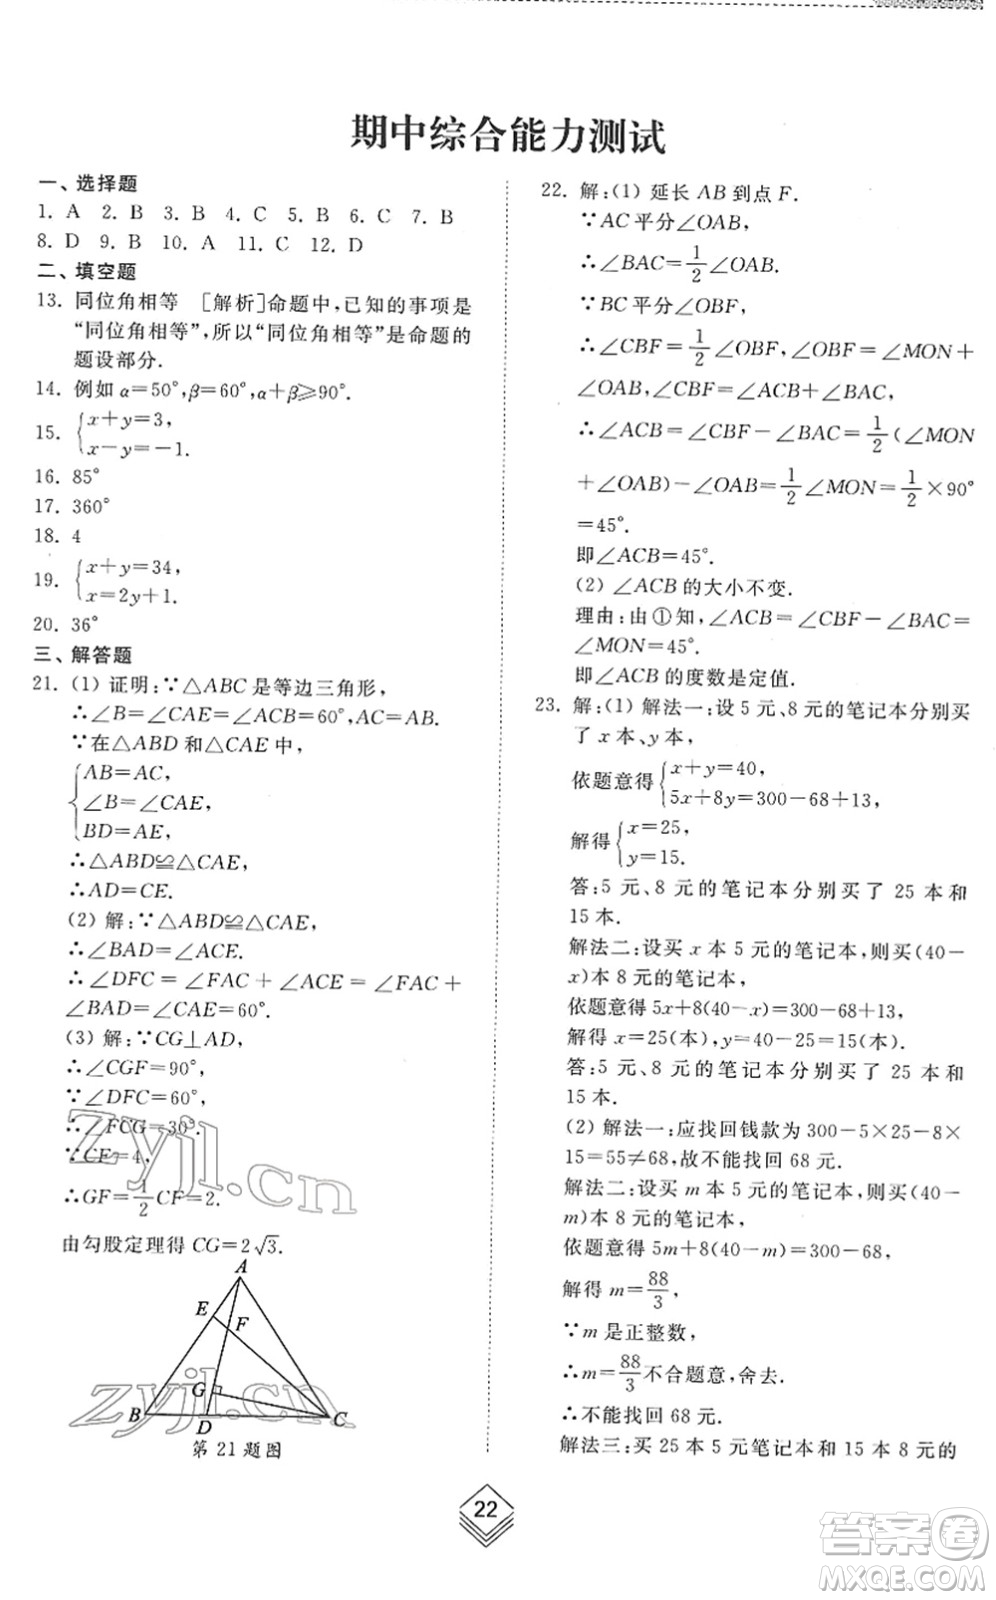 期中综合能力测试
一、选择题
1. A  2. B  3. B  4. C  5. B  6. C  7. B
8. D  9. B  10. A  11. C  12. D
二、填空题
13. 同位角相等  [解析]命题中,已知的事项是
“同位角相等”,所以“同位角相等”是命题的
题设部分.
14. 例如 α=50°,β=60°,α+β≥90°.
15. {x+y=3,
x-y=-1.
16. 85°
17. 360°
18. 4
19. {x+y=34,
x=2y+1.
20. 36°
三、解答题
21. (1) 证明:∵△ABC 是等边三角形,
∴∠B=∠CAE=∠ACB=60°,AC=AB.
∵在△ABD 和△CAE 中,
{AB=AC,
∠B=∠CAE,
BD=AE,
∴△ABD≌△CAE,
∴AD=CE.
(2) 解:∵△ABD≌△CAE,
∴∠BAD=∠ACE.
∴∠DFC=∠FAC+∠ACE=∠FAC+
∠BAD=∠CAE=60°.
(3) 解:∵CG⊥AD,
∴∠CGF=90°,
∵∠DFC=60°,
∴∠FCG=30°.
∵CF=4,
∴GF=1/2 CF=2.
由勾股定理得 CG=2√3.
A
E
F
G
B
D
C
第 21 题图
22. 解:(1) 延长 AB 到点 F.
∵AC 平分∠OAB,
∴∠BAC=1/2∠OAB.
∵BC 平分∠OBF,
∴∠CBF=1/2∠OBF,∠OBF=∠MON+
∠OAB,∠CBF=∠ACB+∠BAC,
∴∠ACB=∠CBF-∠BAC=1/2(∠MON
+∠OAB)-∠OAB=1/2∠MON=1/2×90°
=45°.
即∠ACB=45°.
(2) ∠ACB 的大小不变.
理由:由①知,∠ACB=∠CBF-∠BAC=
∠MON=45°.
即∠ACB 的度数是定值.
23. 解:(1) 解法一:设 5 元、8 元的笔记本分别买
了 x 本、y 本,
依题意得{x+y=40,
5x+8y=300-68+13,
解得{x=25,
y=15.
答:5 元、8 元的笔记本分别买了 25 本和
15 本.
解法二:设买 x 本 5 元的笔记本,则买(40-
x)本 8 元的笔记本,
依题意得 5x+8(40-x)=300-68+13,
解得 x=25(本),y=40-25=15(本).
答:5 元、8 元的笔记本分别买了 25 本和
15 本.
(2) 解法一:应找回钱款为 300-5×25-8×
15=55≠68,故不能找回 68 元.
解法二:设买 m 本 5 元的笔记本,则买(40-
m)本 8 元的笔记本,
依题意得 5m+8(40-m)=300-68,
解得 m=88/3,
∵m 是正整数,
∴m=88/3不合题意,舍去.
∴不能找回 68 元.
解法三:买 25 本 5 元笔记本和 15 本 8 元的
22
zyjl.cn
zyjl.cn
答案卷
MXQE.COM